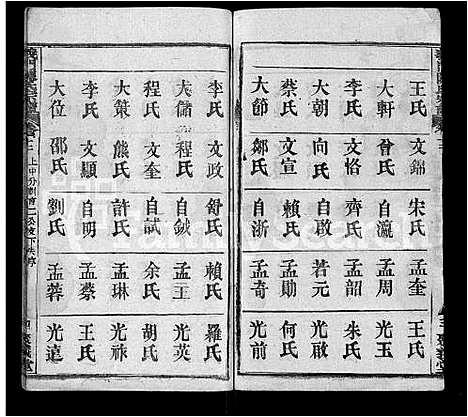 王氏 文錦 宋氏 孟奎 王氏
大軒 曾氏 自瀛 孟周 光玉
大朝 文恪 齊氏 孟韶 朱氏
蔡氏 向氏 自啟 若元 光啟
大節 文宣 賴氏 孟勛 何氏
鄒氏 自浙 孟奇 光前
李氏 文政 舒氏 賴氏 羅氏
大儲 程氏 自鉞 孟王 光英
程氏 文奎 自試 余氏 胡氏
大策 熊氏 許氏 孟琳 光祿
李氏 文顯 自明 孟蔡 王氏
大位 邵氏 劉氏 孟蓉 光遠